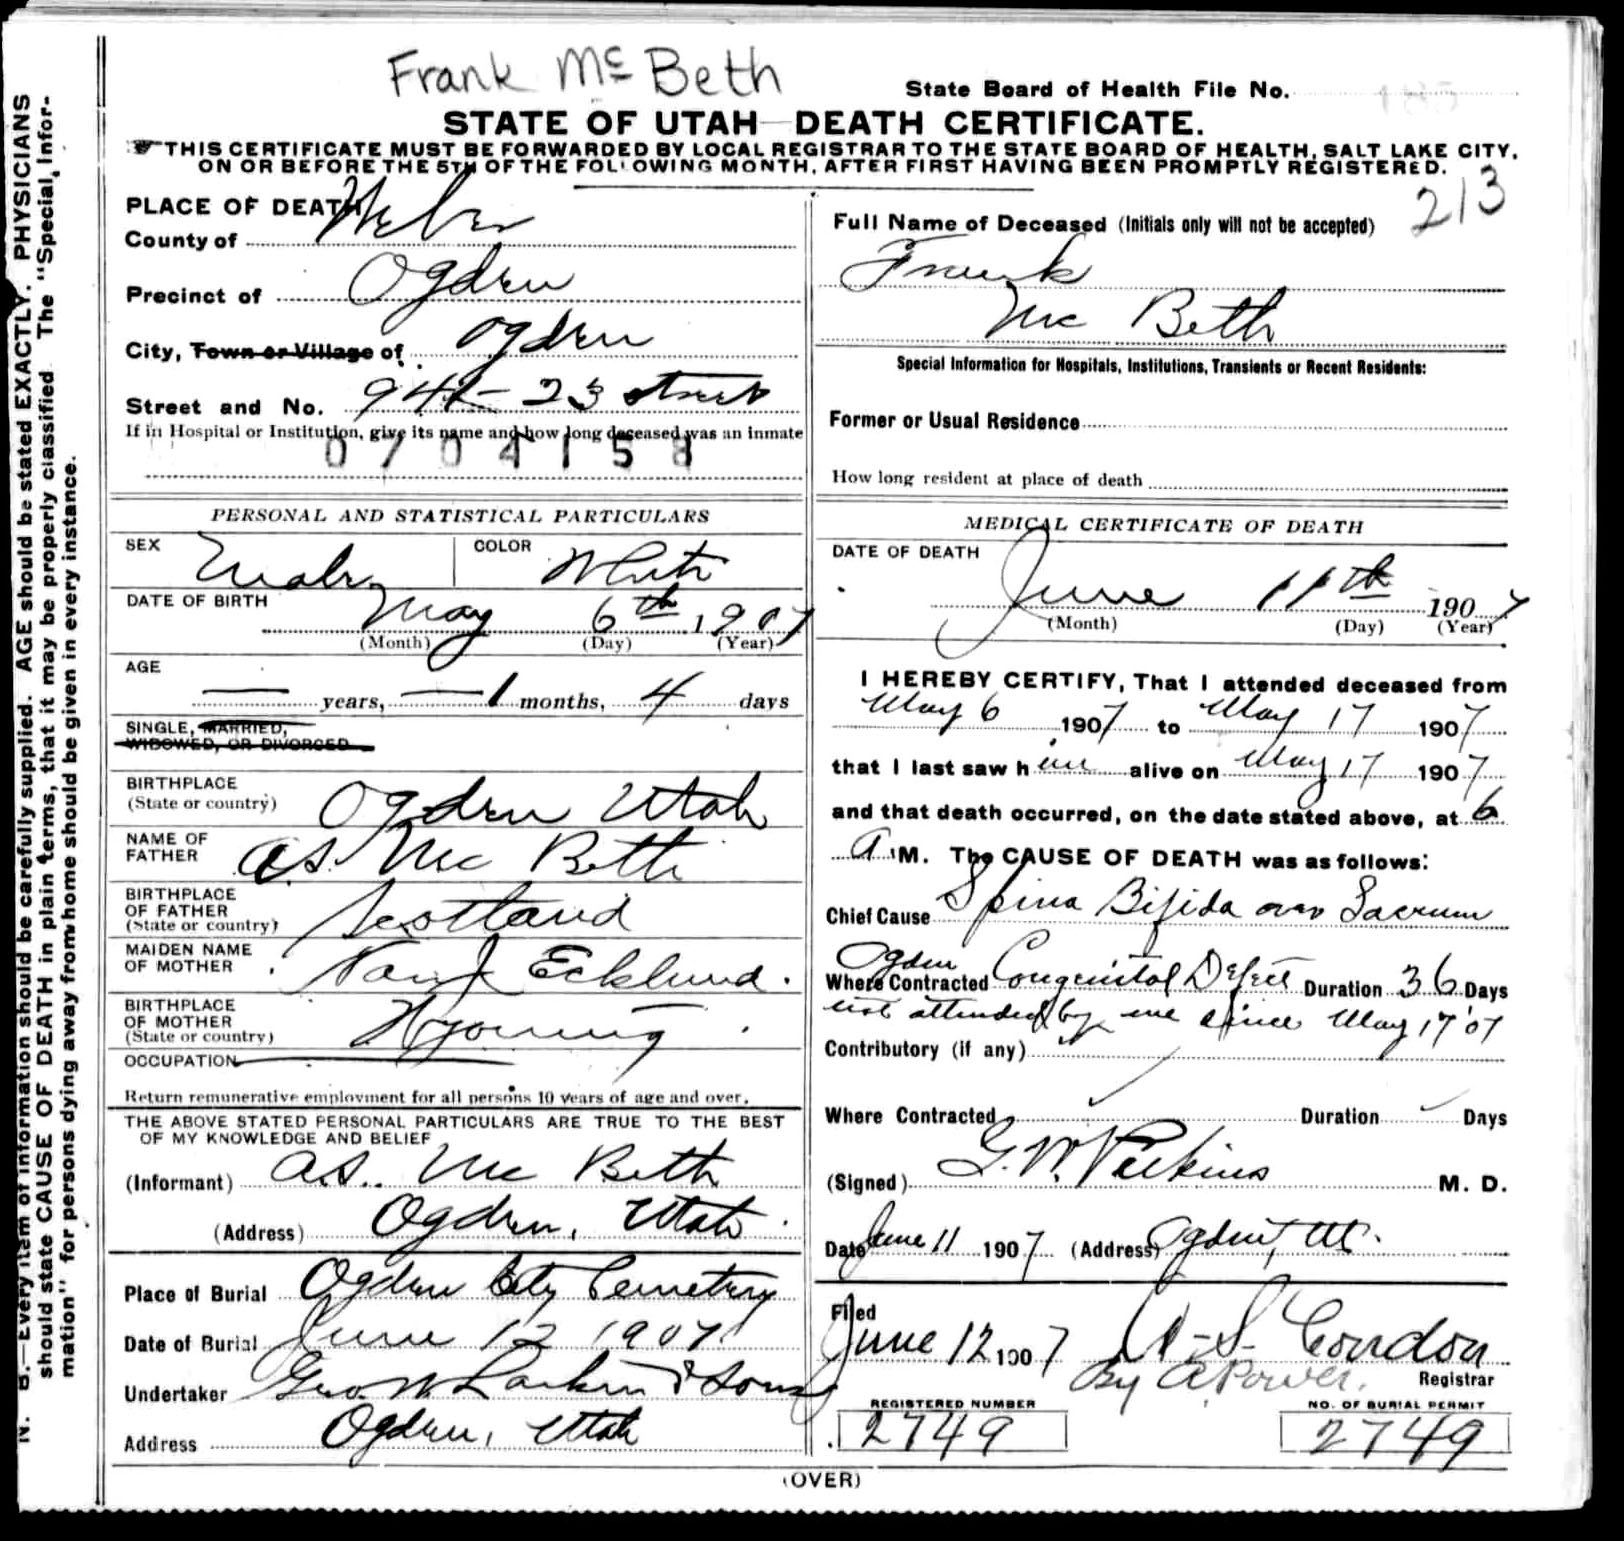 Frank Mc Beth
State Board of Health File No.
STATE OF UTAH—DEATH CERTIFICATE.
THIS CERTIFICATE MUST BE FORWARDED BY LOCAL REGISTRAR TO THE STATE BOARD OF HEALTH, SALT LAKE CITY,
ON OR BEFORE THE 5TH OF THE FOLLOWING MONTH, AFTER FIRST HAVING BEEN PROMPTLY REGISTERED.
213
N. B.—Every item of information should be carefully supplied. AGE should be stated EXACTLY. PHYSICIANS
should state CAUSE OF DEATH in plain terms, that it may be properly classified. The "Special Infor-
mation" for persons dying away from home should be given in every instance.
PLACE OF DEATH
County of Weber
Precinct of Ogden
City, Town or Village of Ogden
Street and No. 23 Street
If in Hospital or Institution, give its name and how long deceased was an inmate
0704158
PERSONAL AND STATISTICAL PARTICULARS
SEX Male COLOR White
DATE OF BIRTH May 6th 1907
(Month) (Day) (Year)
AGE
— years, — 1 months, 4 days
SINGLE, MARRIED,
WIDOWED, OR DIVORCED
BIRTHPLACE
(State or country) Ogden Utah
NAME OF
FATHER A.S. Mc Beth
BIRTHPLACE
OF FATHER
(State or country) Scotland
MAIDEN NAME
OF MOTHER Ecklund.
BIRTHPLACE
OF MOTHER
(State or country) Wyoming
OCCUPATION
Return remunerative employment for all persons 10 years of age and over.
THE ABOVE STATED PERSONAL PARTICULARS ARE TRUE TO THE BEST
OF MY KNOWLEDGE AND BELIEF
(Informant) A.S. Mc Beth
(Address) Ogden, Utah
Place of Burial Ogden City Cemetery
Date of Burial June 12 1907
Undertaker Geo W Larkin & Sons
Address Ogden, Utah
Full Name of Deceased (Initials only will not be accepted)
Frank
Mc Beth
Special Information for Hospitals, Institutions, Transients or Recent Residents:
Former or Usual Residence
How long resident at place of death
MEDICAL CERTIFICATE OF DEATH
DATE OF DEATH
June 11th 1907
(Month) (Day) (Year)
I HEREBY CERTIFY, That I attended deceased from
May 6 1907 to May 17 1907
that I last saw him alive on May 17 1907
and that death occurred, on the date stated above, at 6
A M. The CAUSE OF DEATH was as follows:
Chief Cause Spina Bifida over Sacrum
Ogden
Where Contracted Congenital Defect Duration 36 Days
not attended by me since May 17 '07
Contributory (if any)
Where Contracted Duration Days
(Signed) G. W. Perkins M. D.
Date June 11 1907 (Address) Ogden, Ut.
Filed
June 12 1907 Condon
By A Power. Registrar
REGISTERED NUMBER NO. OF BURIAL PERMIT
2749 2749
(OVER)